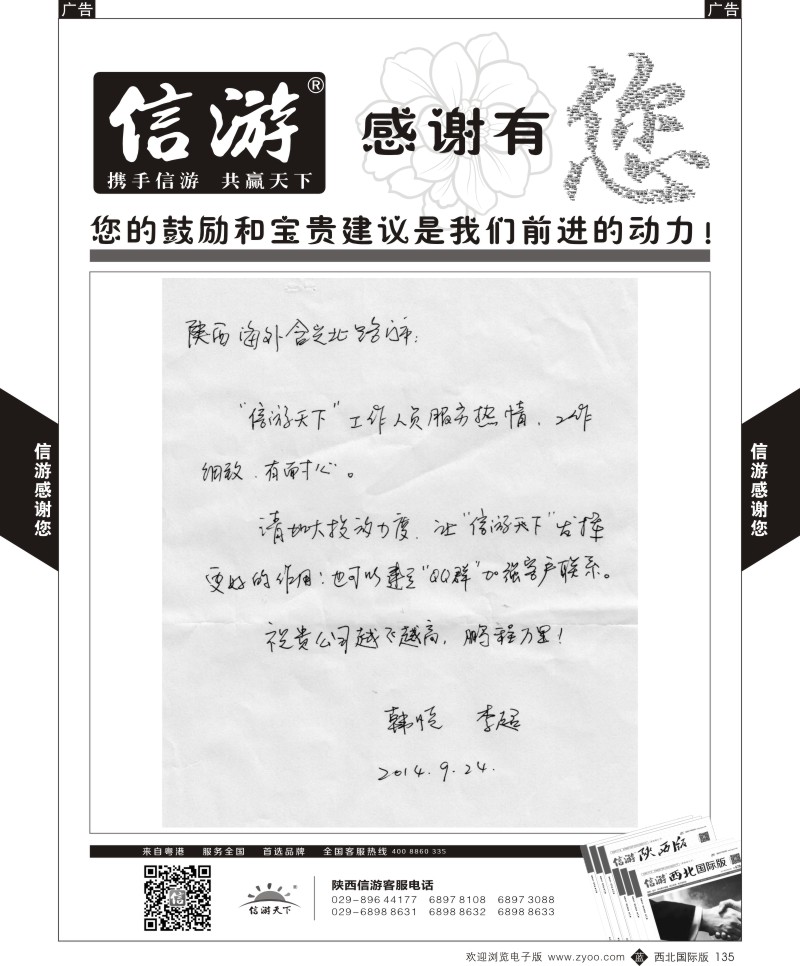 广告
广告
信游®
携手信游 共赢天下
感谢有
您
您的鼓励和宝贵建议是我们前进的动力！
陕西海外含光北路门市：
“信游天下”工作人员服务热情、工作
细致、有耐心。
请加大投放力度，让“信游天下”发挥
更好的作用；也可以建立“QQ群”加强客户联系。
祝贵公司越飞越高，鹏程万里！
李超
2014.9.24.
信游感谢您
信游感谢您
来自粤港 服务全国 首选品牌 全国客服热线 400 8860 335
信游
信游天下
陕西信游客服电话
029-896 44177 6897 8108 6897 3088
029-6898 8631 6898 8632 6898 8633
信游 陕西版
信游 西北国际版
欢迎浏览电子版 www.zyoo.com 蓝 西北国际版 135